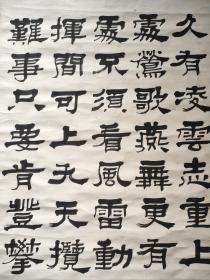 久有凌雲志重上
處鶯歌燕舞更有
處不須看風雷動
揮間可上九天攬
難事只要肯登攀